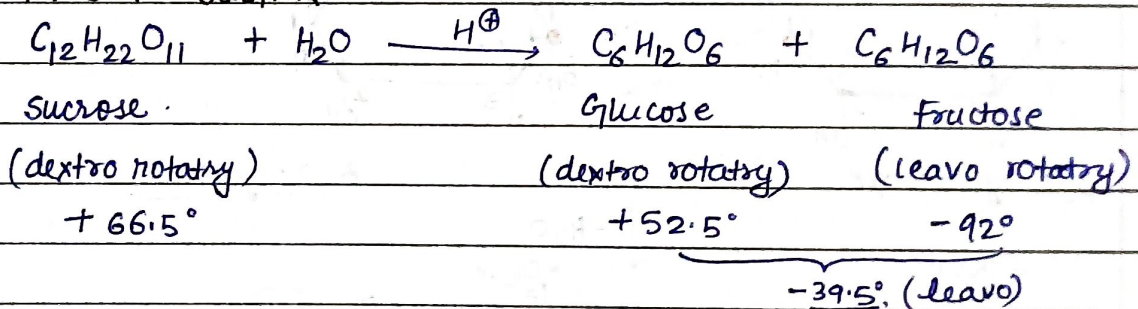 C₁₂H₂₂O₁₁ + H₂O —H⊕→ C₆H₁₂O₆ + C₆H₁₂O₆
sucrose. Glucose Fructose
(dextro rotatry) (dextro rotatry) (leavo rotatry)
+ 66.5° +52.5° -92°
-39.5°. (leavo)